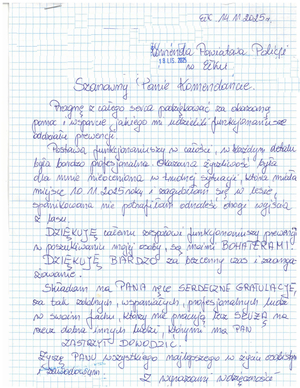 Ełk 14.11.2025r.
Komenda Powiatowa Policji
18 LIS. 2025
w Ełku
Szanowny Panie Komendancie.
Pragnę z całego serca podziękować za okazaną
pomoc i wsparcie jakiego mi udzielili funkcjonariusze
oddziału prewencji.
Postawa funkcjonariuszy w całości i w każdym detalu
była bardzo profesjonalna. Okazana życzliwość była
dla mnie nieoceniona, w trudnej sytuacji, która miała
miejsce 10.11.2025 roku i zagubiłam się w lesie,
spanikowana nie potrafiłam odnaleść drogi wyjścia
z lasu.
DZIĘKUJĘ całemu zespołowi funkcjonariuszy prewencji
w poszukiwaniu mojej osoby, są moimi BOHATERAMI.
DZIĘKUJĘ BARDZO za bezcenny czas i zaanga-
żowanie.
Składam na PANA ręce SERDECZNE GRATULACJE,
za tak zdolnych, wspaniałych, profesjonalnych ludzi
w swoim fachu, którzy nie pracują lecz SŁUŻĄ na
rzecz dobra innych ludzi, którymi ma PAN
ZASZCZYT DOWODZIĆ.
Życzę PANU wszystkiego najlepszego w życiu osobistym
i zawodowym.
Z wyrazami wdzięczności